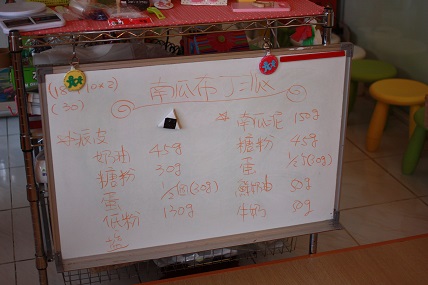 (30)
南瓜布丁派
派皮
奶油 45g
糖粉 30g
蛋 1/2個(30g)
低粉 130g
鹽
* 南瓜泥 150g
糖粉 45g
蛋 (30g)
鮮奶油 50g
牛奶 50g